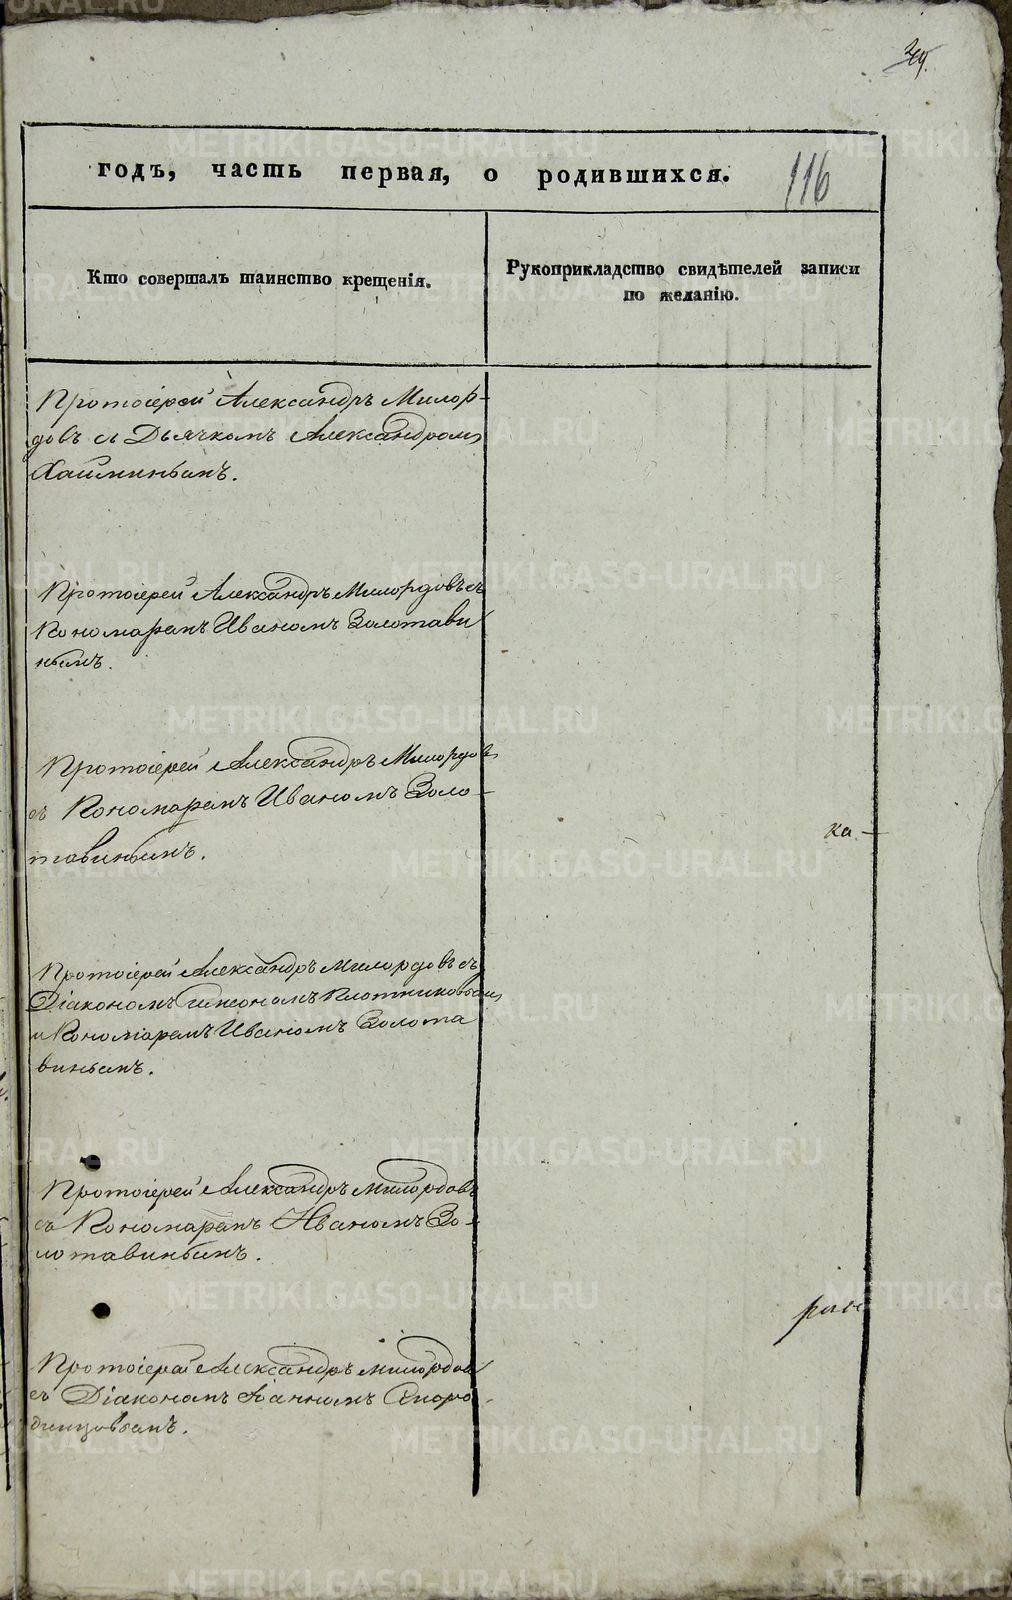 годъ, часть первая, о родившихся.
116
Кто совершалъ таинство крещенія.
Рукоприкладство свидѣтелей записи
по желанію.
Протоіерей Александръ Милор-
довъ съ Дьячкомъ Александромъ
Протоіерей Александръ Милордовъ съ
Пономаремъ Иваномъ Золотави
нымъ.
Протоіерей Александръ Милордовъ
съ Пономаремъ Иваномъ Золо-
тавинымъ.
ка-
Протоіерей Александръ Милордовъ съ
Діакономъ Плотниковымъ
и Пономаремъ Иваномъ Золота
винымъ.
Протоіерей Александръ Милордовъ
съ Пономаремъ Иваномъ Зо-
лотавинымъ.
Протоіерей Александръ Милордовъ
съ Діакономъ Іоанномъ
METRIKI.GASO-URAL.RU